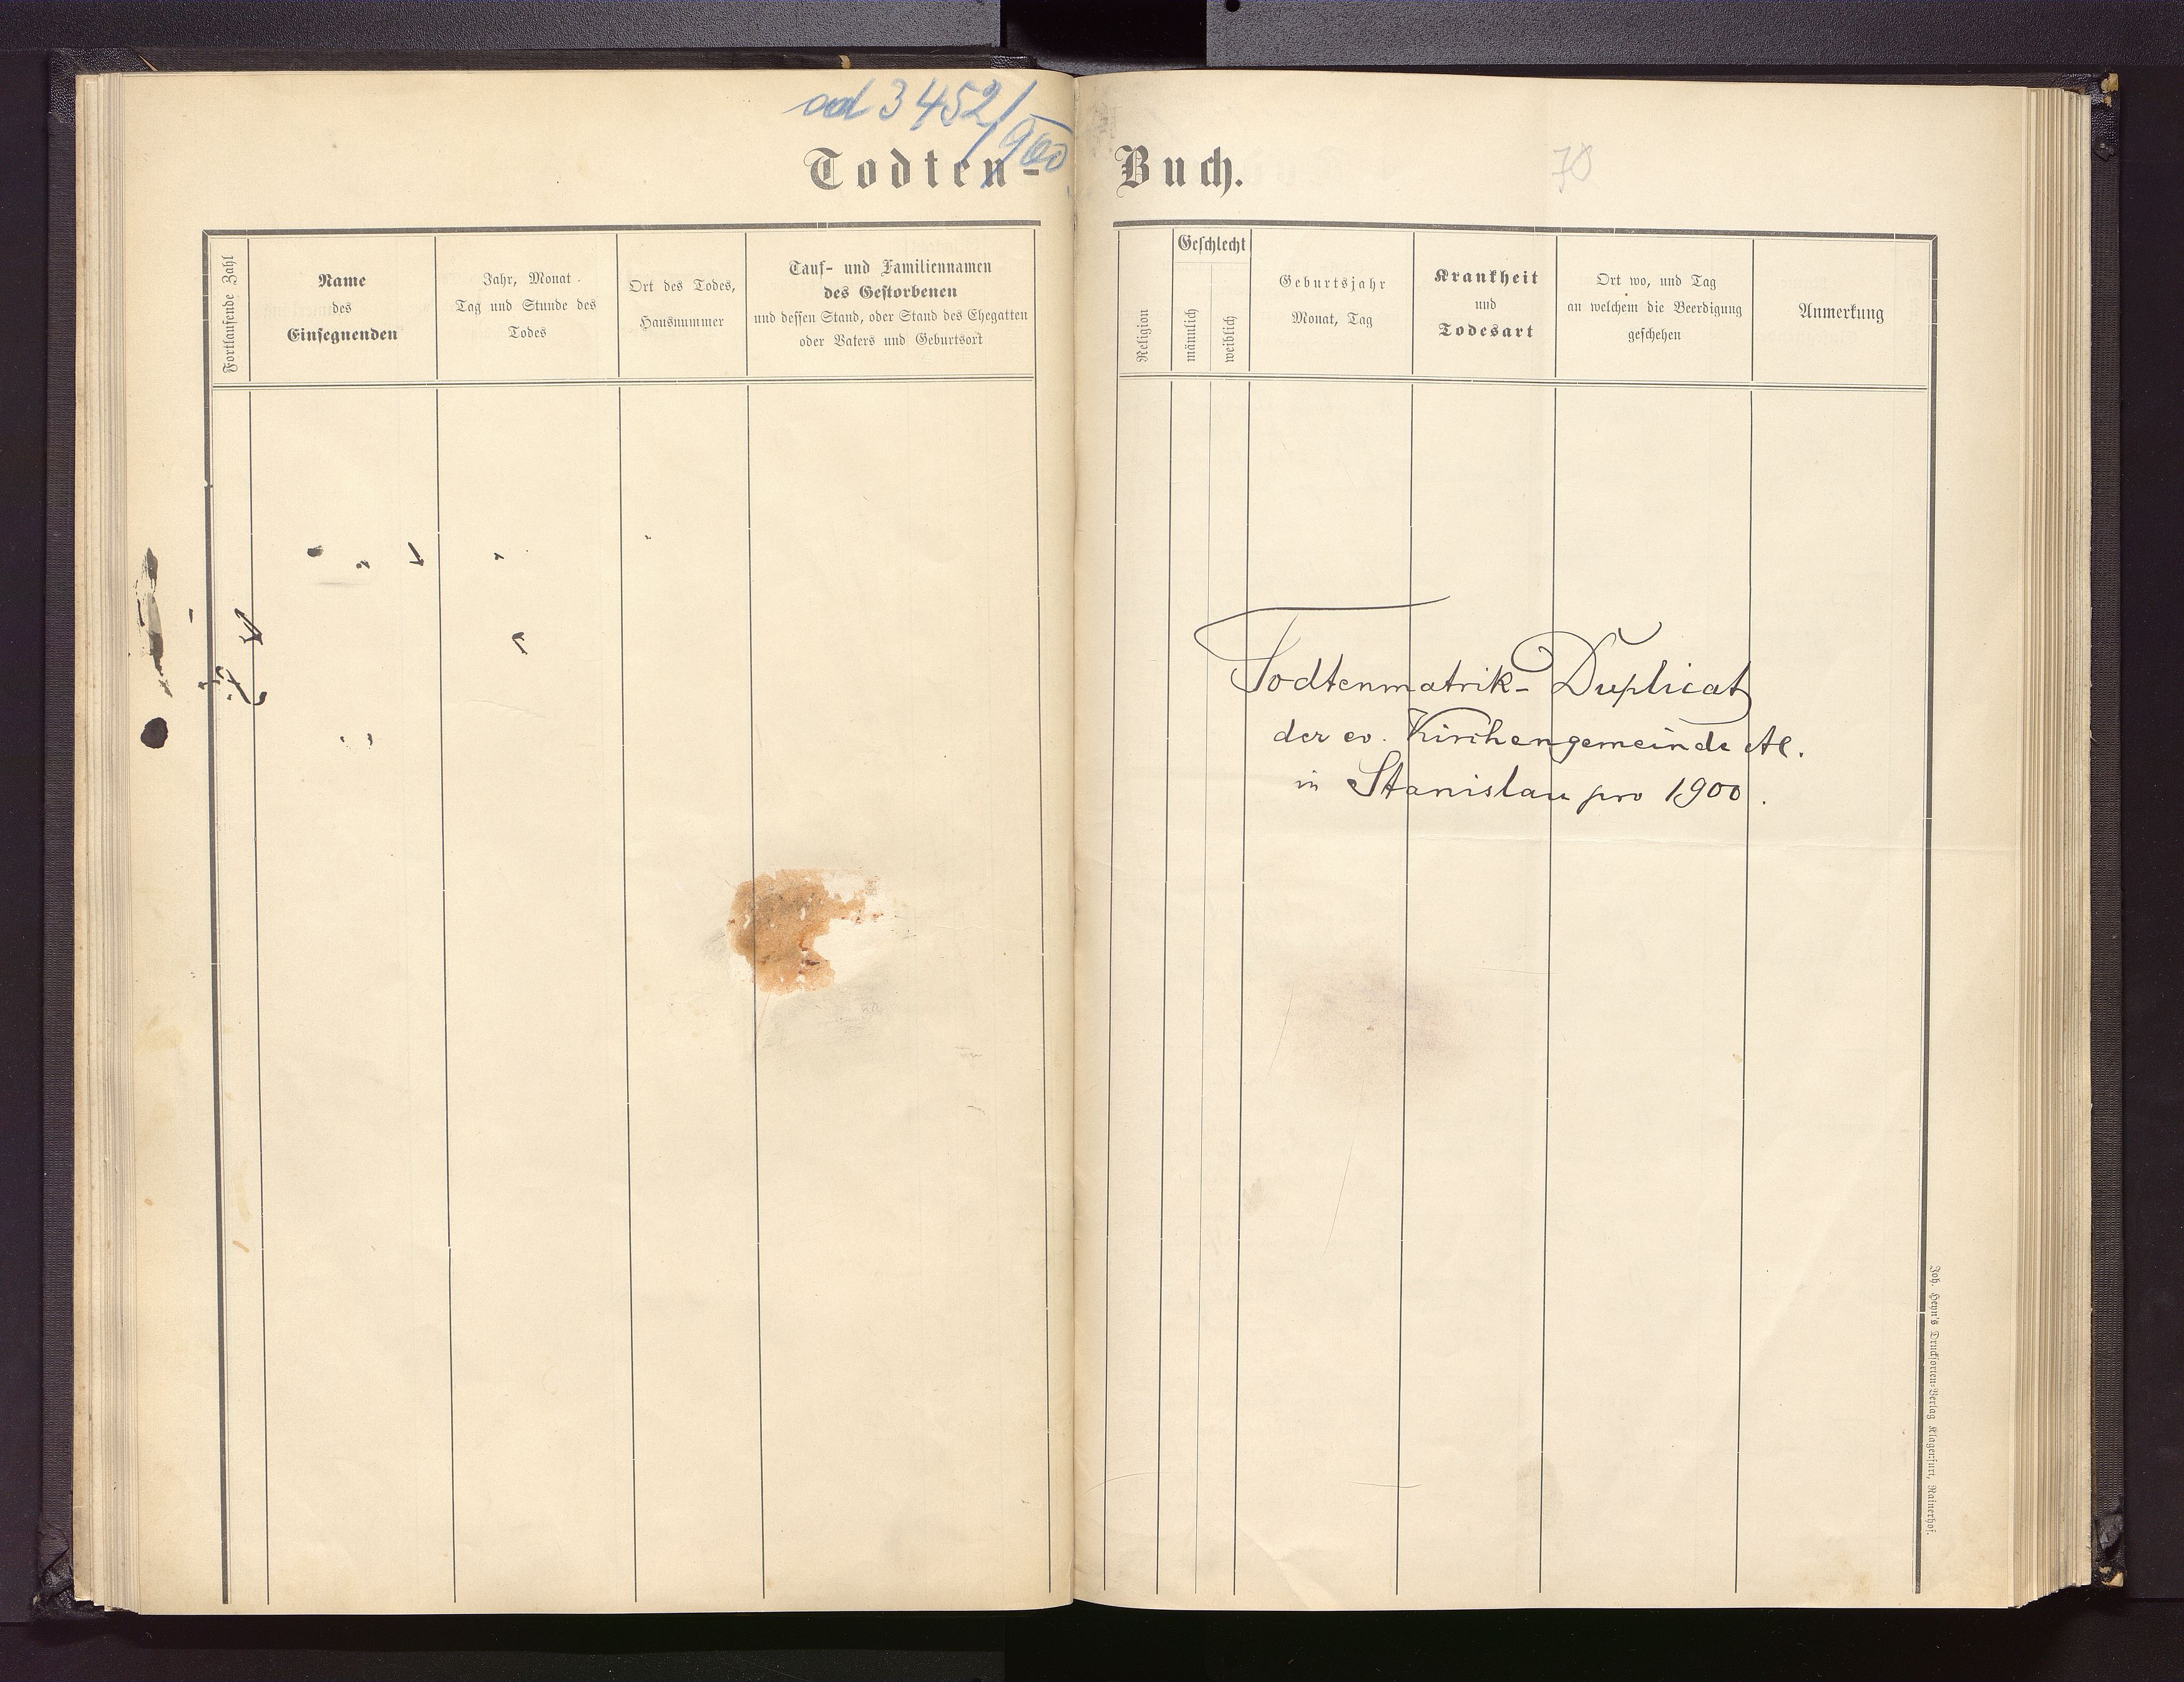 ad 3452/900
Todten-Buch.
70
Fortlaufende Zahl
Name
des
Einsegnenden
Jahr, Monat
Tag und Stunde des
Todes
Ort des Todes,
Hausnummer
Tauf- und Familiennamen
des Gestorbenen
und dessen Stand, oder Stand des Ehegatten
oder Vaters und Geburtsort
Religion
Geschlecht
männlich
weiblich
Geburtsjahr
Monat, Tag
Krankheit
und
Todesart
Ort wo, und Tag
an welchem die Beerdigung
geschehen
Anmerkung
Todtenmatrik-Duplicat
der ev. Kirchengemeinde AC.
in Stanislau pro 1900.
Joh. Heyn's Drucksorten-Verlag Klagenfurt, Rainerhof.